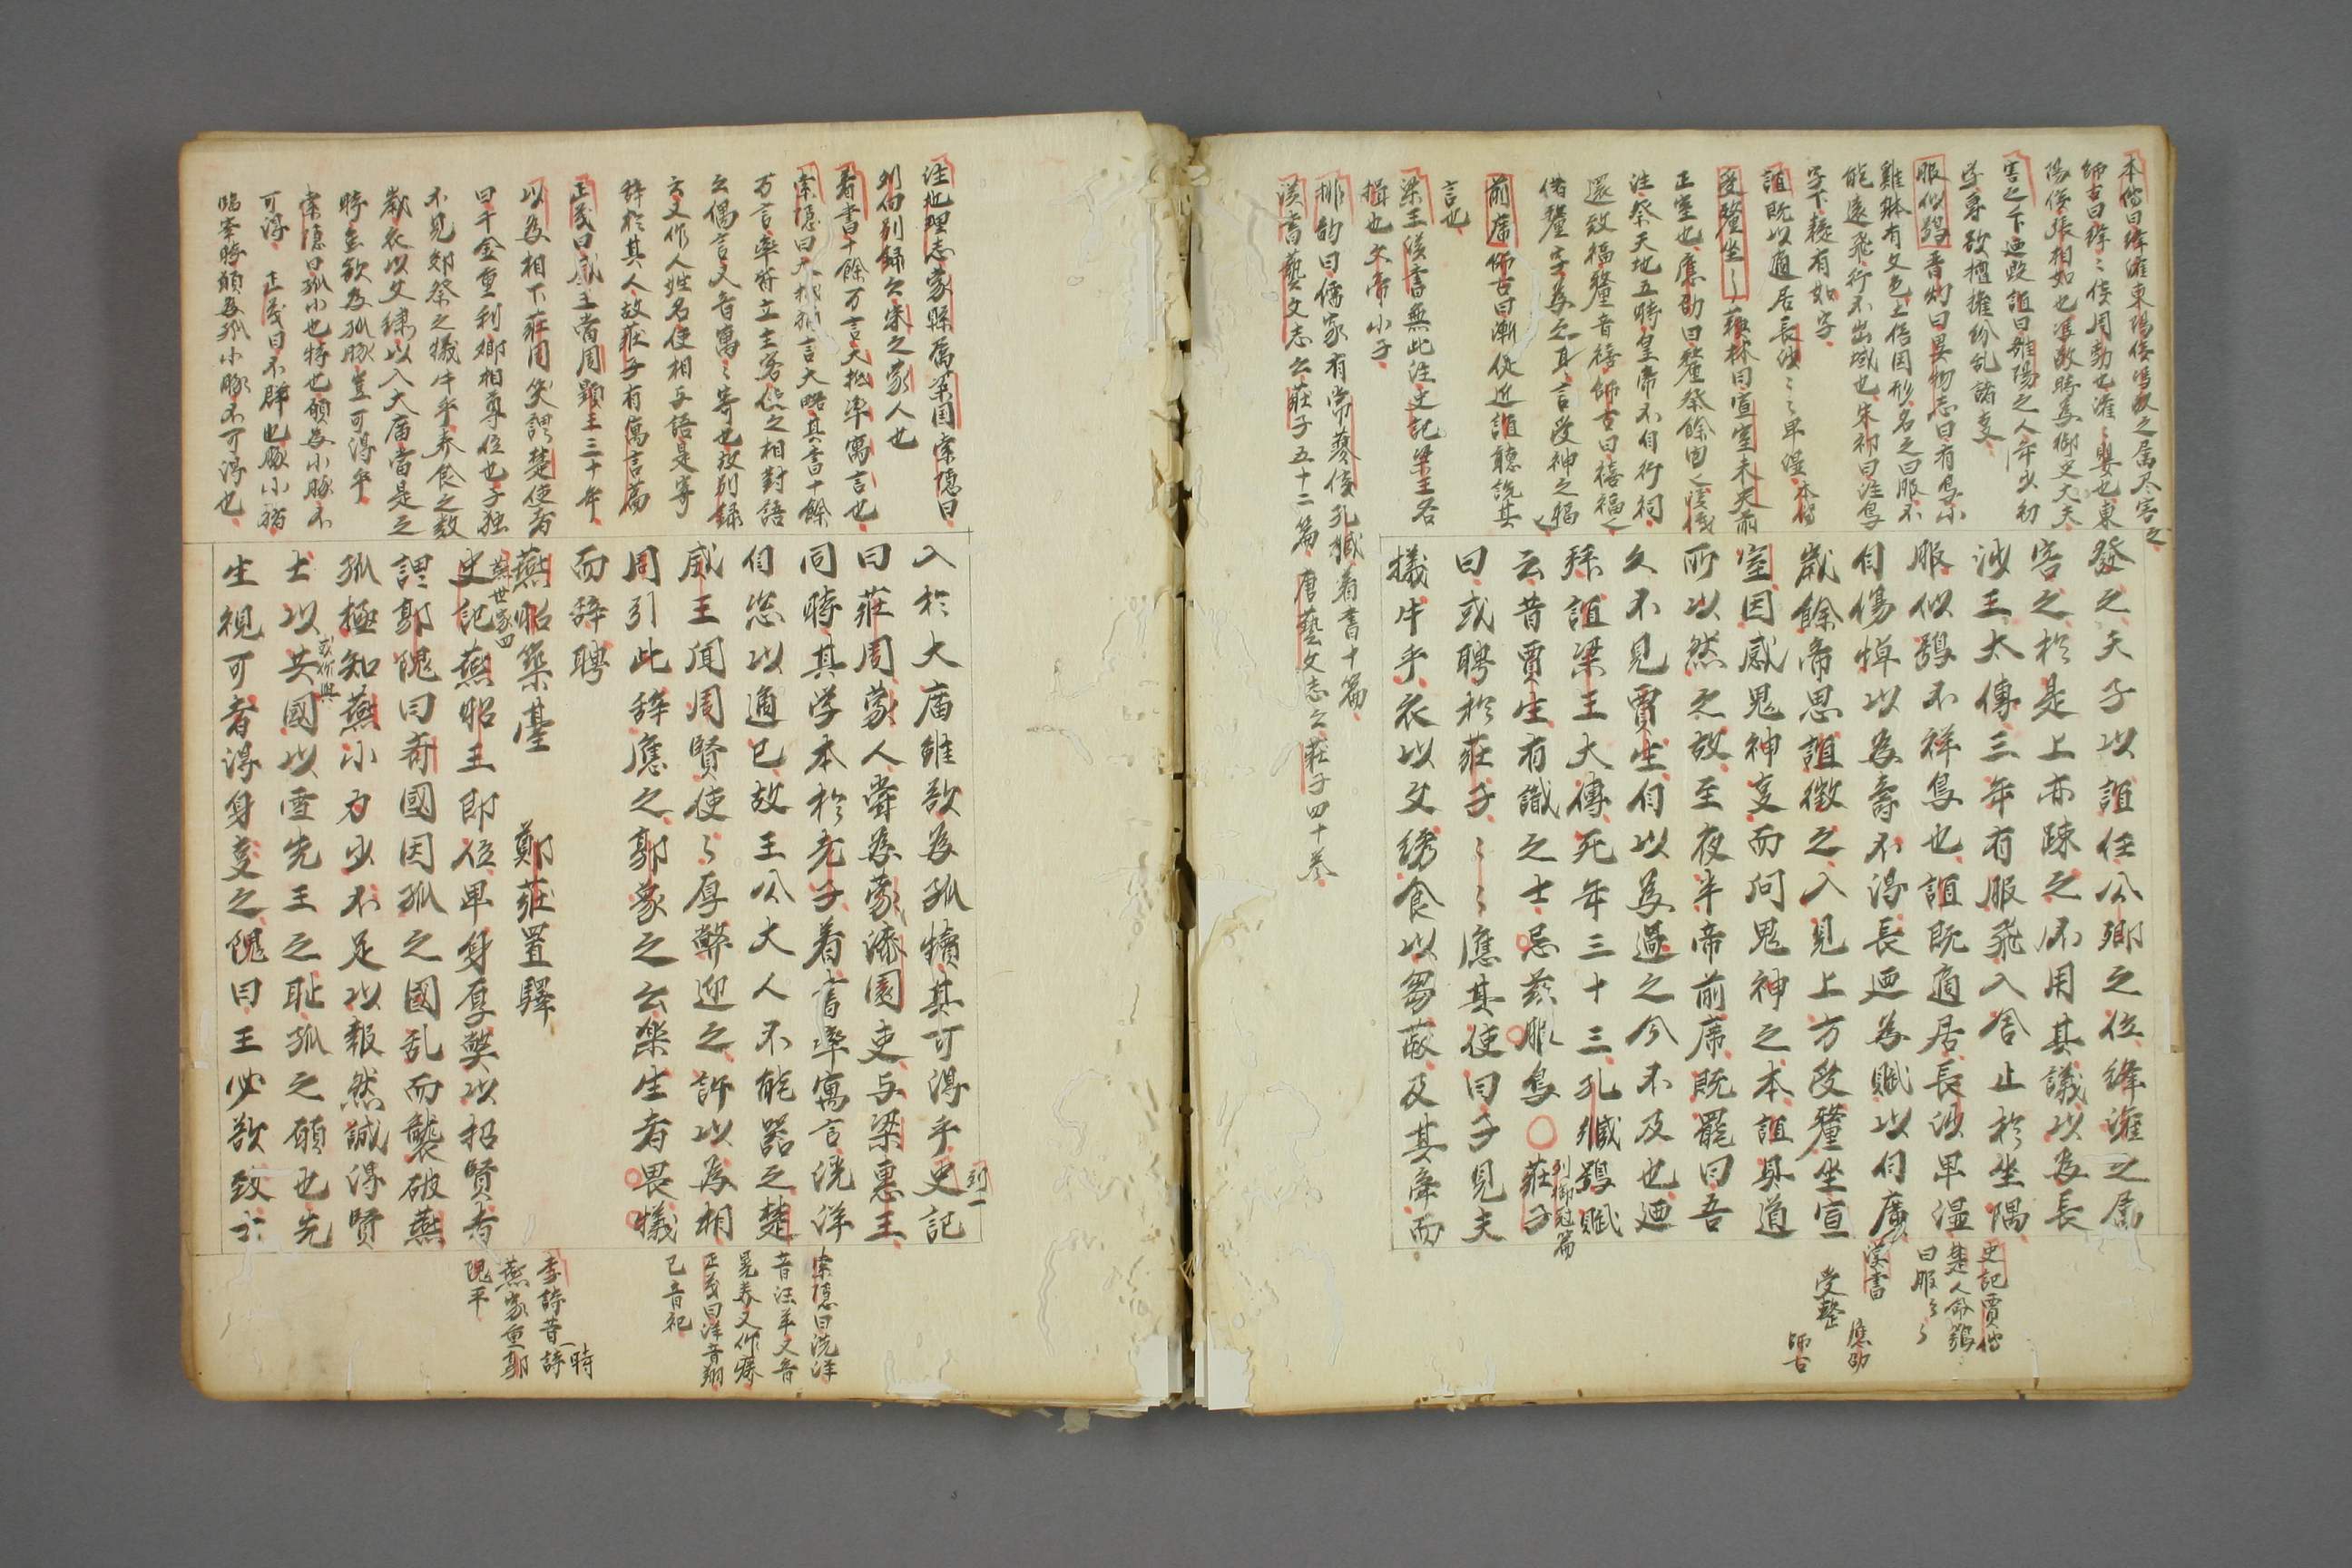 本傳曰絳灌東陽侯馮敬之屬尽害之
師古曰絳〻侯周勃也灌〻嬰也東
陽侯張相如也馮敬時為御史大夫
害之下廼毀誼曰雒陽之人年少初
学專欲擅權紛乱諸变
服似鴞晋灼曰異物志曰有鳥小
雞躰有文色土俗因形名之曰服不
能遠飛行不出域也
字下疑有如字
誼既以適居長沙〻〻卑湿本傳
受釐坐〻蘇林曰宣室未央前
正室也應劭曰釐祭餘肉也漢儀
注祭天地五畤皇帝不自行祠
還致福釐音禧師古曰禧福也
借釐字為之耳言受神之福
前席師古曰漸促近誼聽說其
言也
梁王漢書無此注史記梁王名
揖也文帝小子
排韵曰儒家有蓼侯孔臧着書十篇
漢書藝文志云莊子五十二篇 唐藝文志云莊子四十卷
發之天子以誼任公卿之位絳灌之屬
害之於是上亦踈之不用其議以為長
沙王太傅三年有服飛入舍止於坐隅
服似鴞不祥鳥也誼既適居長沙卑湿
自傷悼以為壽不得長廼為賦以自廣
歲餘帝思誼徵之入見上方受釐坐宣
室因感鬼神变而问鬼神之本誼具道
所以然之故至夜半帝前席既罷曰吾
久不見賈生自以為過之今不及也廼
拜誼梁王太傅死年三十三孔臧鴞賦
云昔賈生有識之士忌茲服鳥〇莊子
列御冦篇
曰或聘於莊子〻〻應其使曰子見夫
犧牛乎衣以文绣食以芻菽及其牽而
史記賈傳
楚人命鴞
曰服〻〻
漢書
受釐
應劭
師古
注地理志蒙縣属梁国索隠曰
刘向别録云宋之蒙人也
着書十餘万言大抵率寓言也
索隠曰大抵猶言大略其書十餘
万言率皆立主客使之相對語
云偶言又音寓〻寄也故别録
云又作人姓名使相与語是寄
辞於其人故莊子有寓言篇
正義曰威王當周顕王三十年
以為相下莊周笑謂楚使者
曰千金重利卿相尊位也子独
不見郊祭之犧牛乎养食之数
歲衣以文绣以入大庿當是之
時虽欲為孤豚豈可得乎
索隠曰孤小也特也願為小豚不
可得 正義曰不群也豚小猪
臨宰時願為孤小豚不可得也
入於大庿雖欲為孤犢其可得乎史記
列一
曰莊周蒙人嘗為蒙漆園吏与梁惠王
同時其学本於老子着書率寓言洸洋
自恣以適已故王公大人不能器之楚
威王闻周賢使〻厚幣迎之許以為相
周引此辞應之郭象之云楽生者畏犧
而辞聘
燕昭築臺 鄭莊置驛
燕世家四
史記燕昭王即位卑身厚弊以招賢者
謂郭隗曰斉國因孤之國乱而襲破燕
孤極知燕小力少不足以報然誠得賢
士以共國以雪先王之耻孤之願也先
或作與
生視可者得身变之隗曰王必欲致士
索隠曰洸洋
音汪羊又音
晃养又作瀁
正義曰洋音翔
已音祀
李詩昔時
燕家重郭
隗平